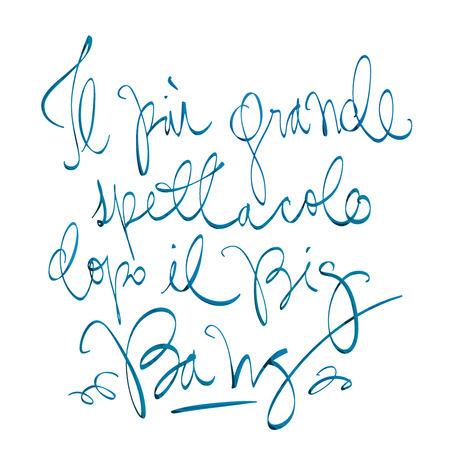 Il più grande
spettacolo
dopo il Big
Bang